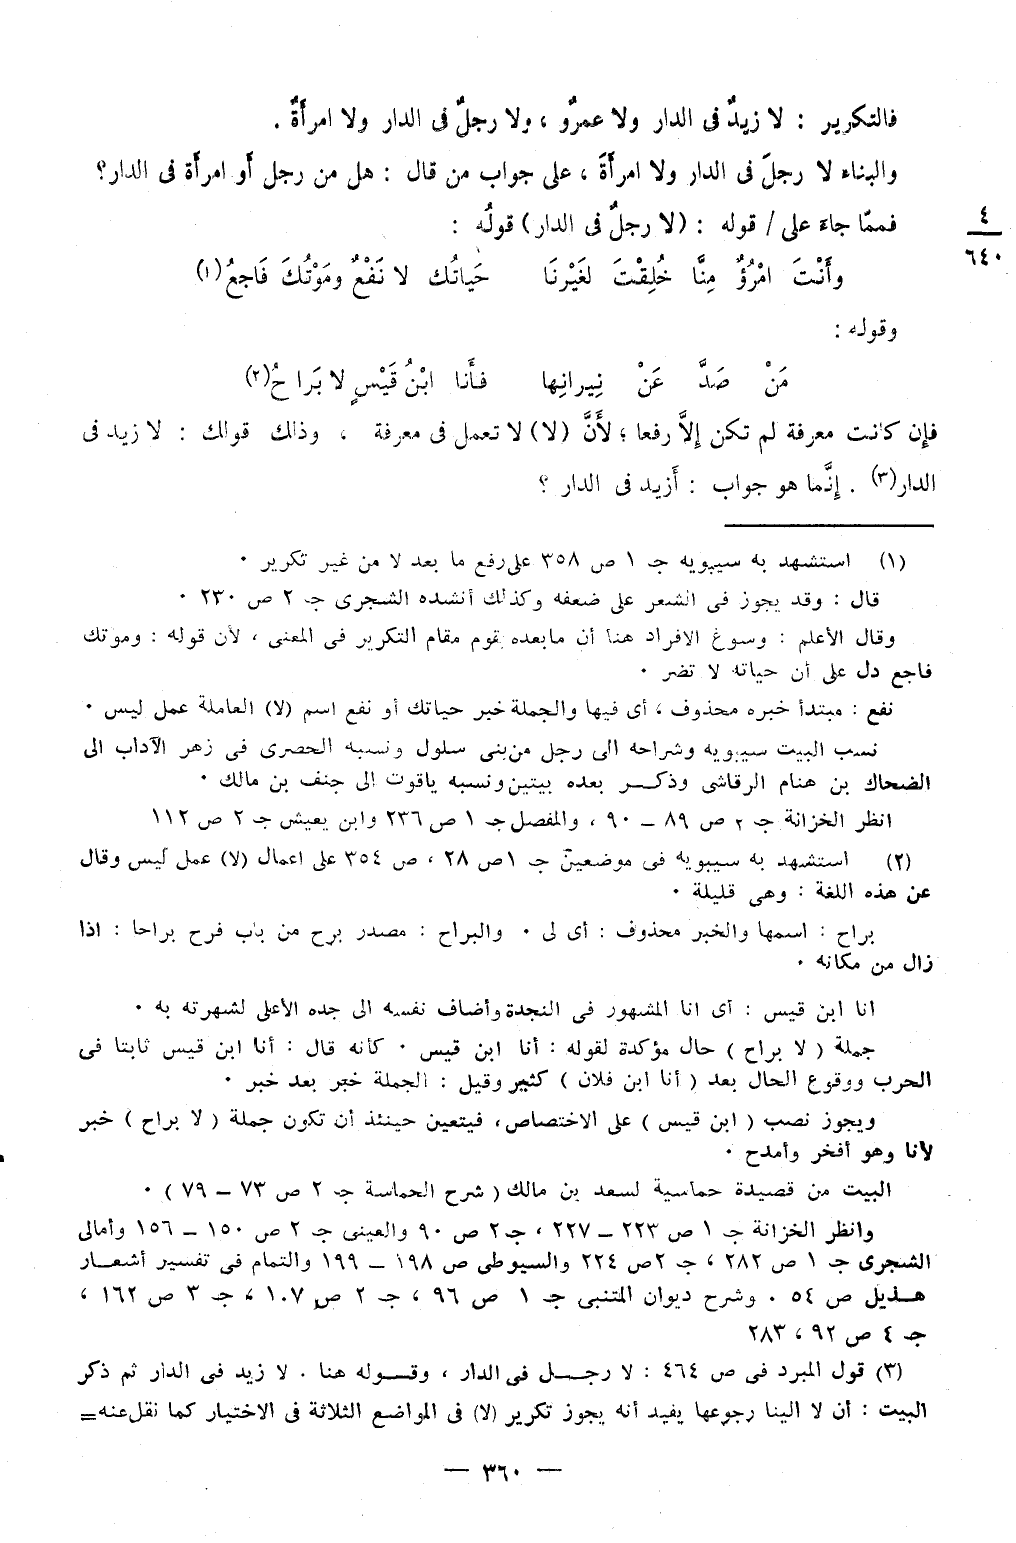 فالتكرير : لا زيدٌ فى الدار ولا عمرٌو ، ولا رجلٌ فى الدار ولا امرأَةٌ .
والبناء لا رجلَ فى الدار ولا امرأَةَ ، على جواب من قال : هل من رجل أَو امرأَة فى الدار؟
٤
٦٤٠
فممّا جاءَ على / قوله : (لا رجلٌ فى الدار) قولُه :
وأَنْتَ امْرُؤٌ مِنَّا خُلِقْتَ لغَيْرِنَا حَيَاتُك لا نَفْعٌ ومَوْتُكَ فَاجعُ(١)
وقوله :
مَنْ صَدَّ عَنْ نِيرانِها فأَنا ابْنُ قَيْسٍ لا بَرَاحُ(٢)
فإن كانت معرفة لم تكن إلاَّ رفعا ؛ لأَنَّ (لا) لا تعمل فى معرفة ، وذلك قولك : لا زيد فى
الدار(٣) . إنَّما هو جواب : أَزيد فى الدار ؟
(١) استشهد به سيبويه جـ ١ ص ٣٥٨ على رفع ما بعد لا من غير تكرير ٠
قال : وقد يجوز فى الشعر على ضعفه وكذلك أنشده الشجرى جـ ٢ ص ٢٣٠ ٠
وقال الأعلم : وسوغ الافراد هنا أن مابعده يقوم مقام التكرير فى المعنى ، لأن قوله : وموتك
فاجع دل على أن حياته لا تضر ٠
نفع : مبتدأ خبره محذوف ، أى فيها والجملة خبر حياتك أو نفع اسم (لا) العاملة عمل ليس ٠
نسب البيت سيبويه وشراحه الى رجل من بنى سلول ونسبه الحصرى فى زهر الآداب الى
الضحاك بن هنام الرقاشى وذكر بعده بيتين ونسبه ياقوت الى جنف بن مالك ٠
انظر الخزانة جـ ٢ ص ٨٩ – ٩٠ ، والمفصل جـ ١ ص ٢٣٦ وابن يعيش جـ ٢ ص ١١٢
(٢) استشهد به سيبويه فى موضعين جـ ١ ص ٢٨ ، ص ٣٥٤ على اعمال (لا) عمل ليس وقال
عن هذه اللغة : وهى قليلة ٠
براح : اسمها والخبر محذوف : أى لى ٠ والبراح : مصدر برح من باب فرح براحا : اذا
زال من مكانه ٠
انا ابن قيس : أى انا المشهور فى النجدة وأضاف نفسه الى جده الأعلى لشهرته به ٠
جملة ( لا براح ) حال مؤكدة لقوله : أنا ابن قيس ٠ كأنه قال : أنا ابن قيس ثابتا فى
الحرب ووقوع الحال بعد ( أنا ابن فلان ) كثير وقيل : الجملة خبر بعد خبر ٠
ويجوز نصب ( ابن قيس ) على الاختصاص، فيتعين حينئذ أن تكون جملة ( لا براح ) خبر
لأنا وهو أفخر وأمدح ٠
البيت من قصيدة حماسية لسعد بن مالك ( شرح الحماسة جـ ٢ ص ٧٣ – ٧٩ ) ٠
وانظر الخزانة جـ ١ ص ٢٢٣ – ٢٢٧ ، جـ ٢ ص ٩٠ والعينى جـ ٢ ص ١٥٠ – ١٥٦ وأمالى
الشجرى جـ ١ ص ٢٨٢ ، جـ ٢ ص ٢٢٤ والسيوطى ص ١٩٨ – ١٩٩ والتمام فى تفسير أشعار
هذيل ص ٥٤ ٠ وشرح ديوان المتنبى جـ ١ ص ٩٦ ، جـ ٢ ص ١٠٧ ، جـ ٣ ص ١٦٢ ،
جـ ٤ ص ٩٢ ، ٢٨٣
(٣) قول المبرد فى ص ٤٦٤ : لا رجل فى الدار ، وقوله هنا . لا زيد فى الدار ثم ذكر
البيت : أن لا الينا رجوعها يفيد أنه يجوز تكرير (لا) فى المواضع الثلاثة فى الاختيار كما نقل عنه=
— ٣٦٠ —